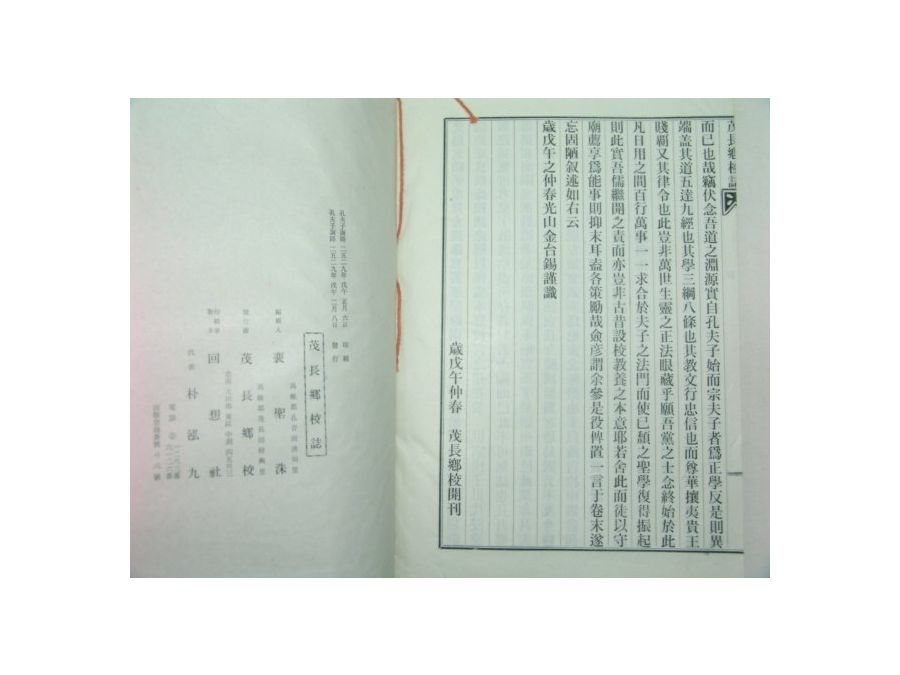 茂長鄕校誌
而已也哉竊伏念吾道之淵源實自孔夫子始而宗夫子者爲正學反是則異
端盖其道五達九經也其學三綱八條也其教文行忠信也而尊華攘夷貴王
賤覇又其律令也此豈非萬世生靈之正法眼藏乎願吾黨之士念終始於此
凡日用之間百行萬事一一求合於夫子之法門而使已頹之聖學復得振起
則此實吾儒繼開之責而亦豈非古昔設校教養之本意耶若舍此而徒以守
廟薦享爲能事則抑末耳盍各策勵哉僉彦謂余參是役俾置一言于卷末遂
忘固陋叙述如右云
歲戊午之仲春光山金台錫謹識
歲戊午仲春 茂長鄕校開刊
茂長鄕校誌
編輯人
發行處 茂長鄕校
回想社
代表 朴泓九